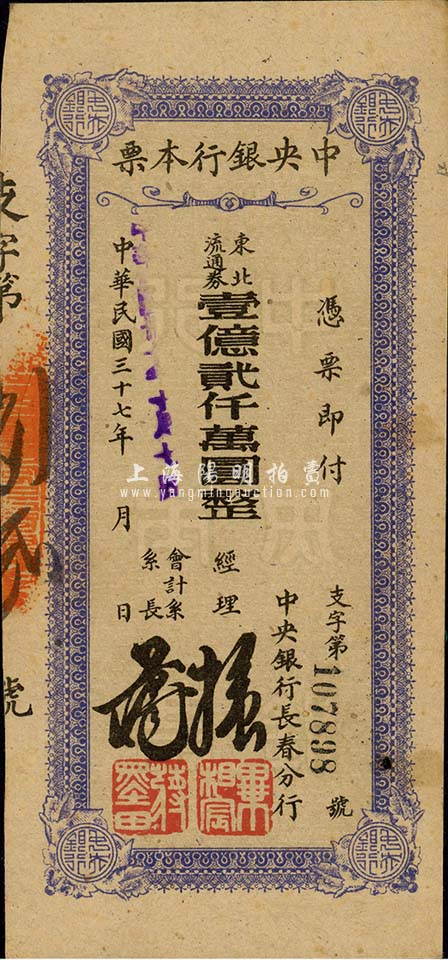 中央銀行本票
憑票即付
東北
流通券
壹億貳仟萬圓整
中華民國三十七年　月　日
支字第107898號
中央銀行長春分行
經理
會計系
系長
支字第
號
上海陽明拍賣
www.yangmingauction.com